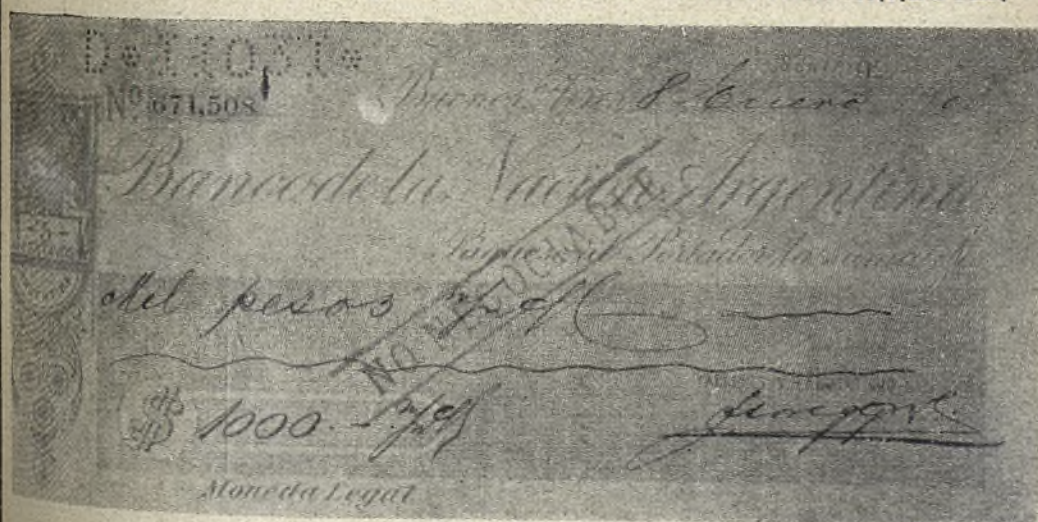 Nº 671,508
Buenos Aires 8 Enero
Banco de la Nación Argentina
Páguese al Portador la suma de
Mil pesos m/n
NO NEGOCIABLE
$ 1000.- m/n
Moneda Legal